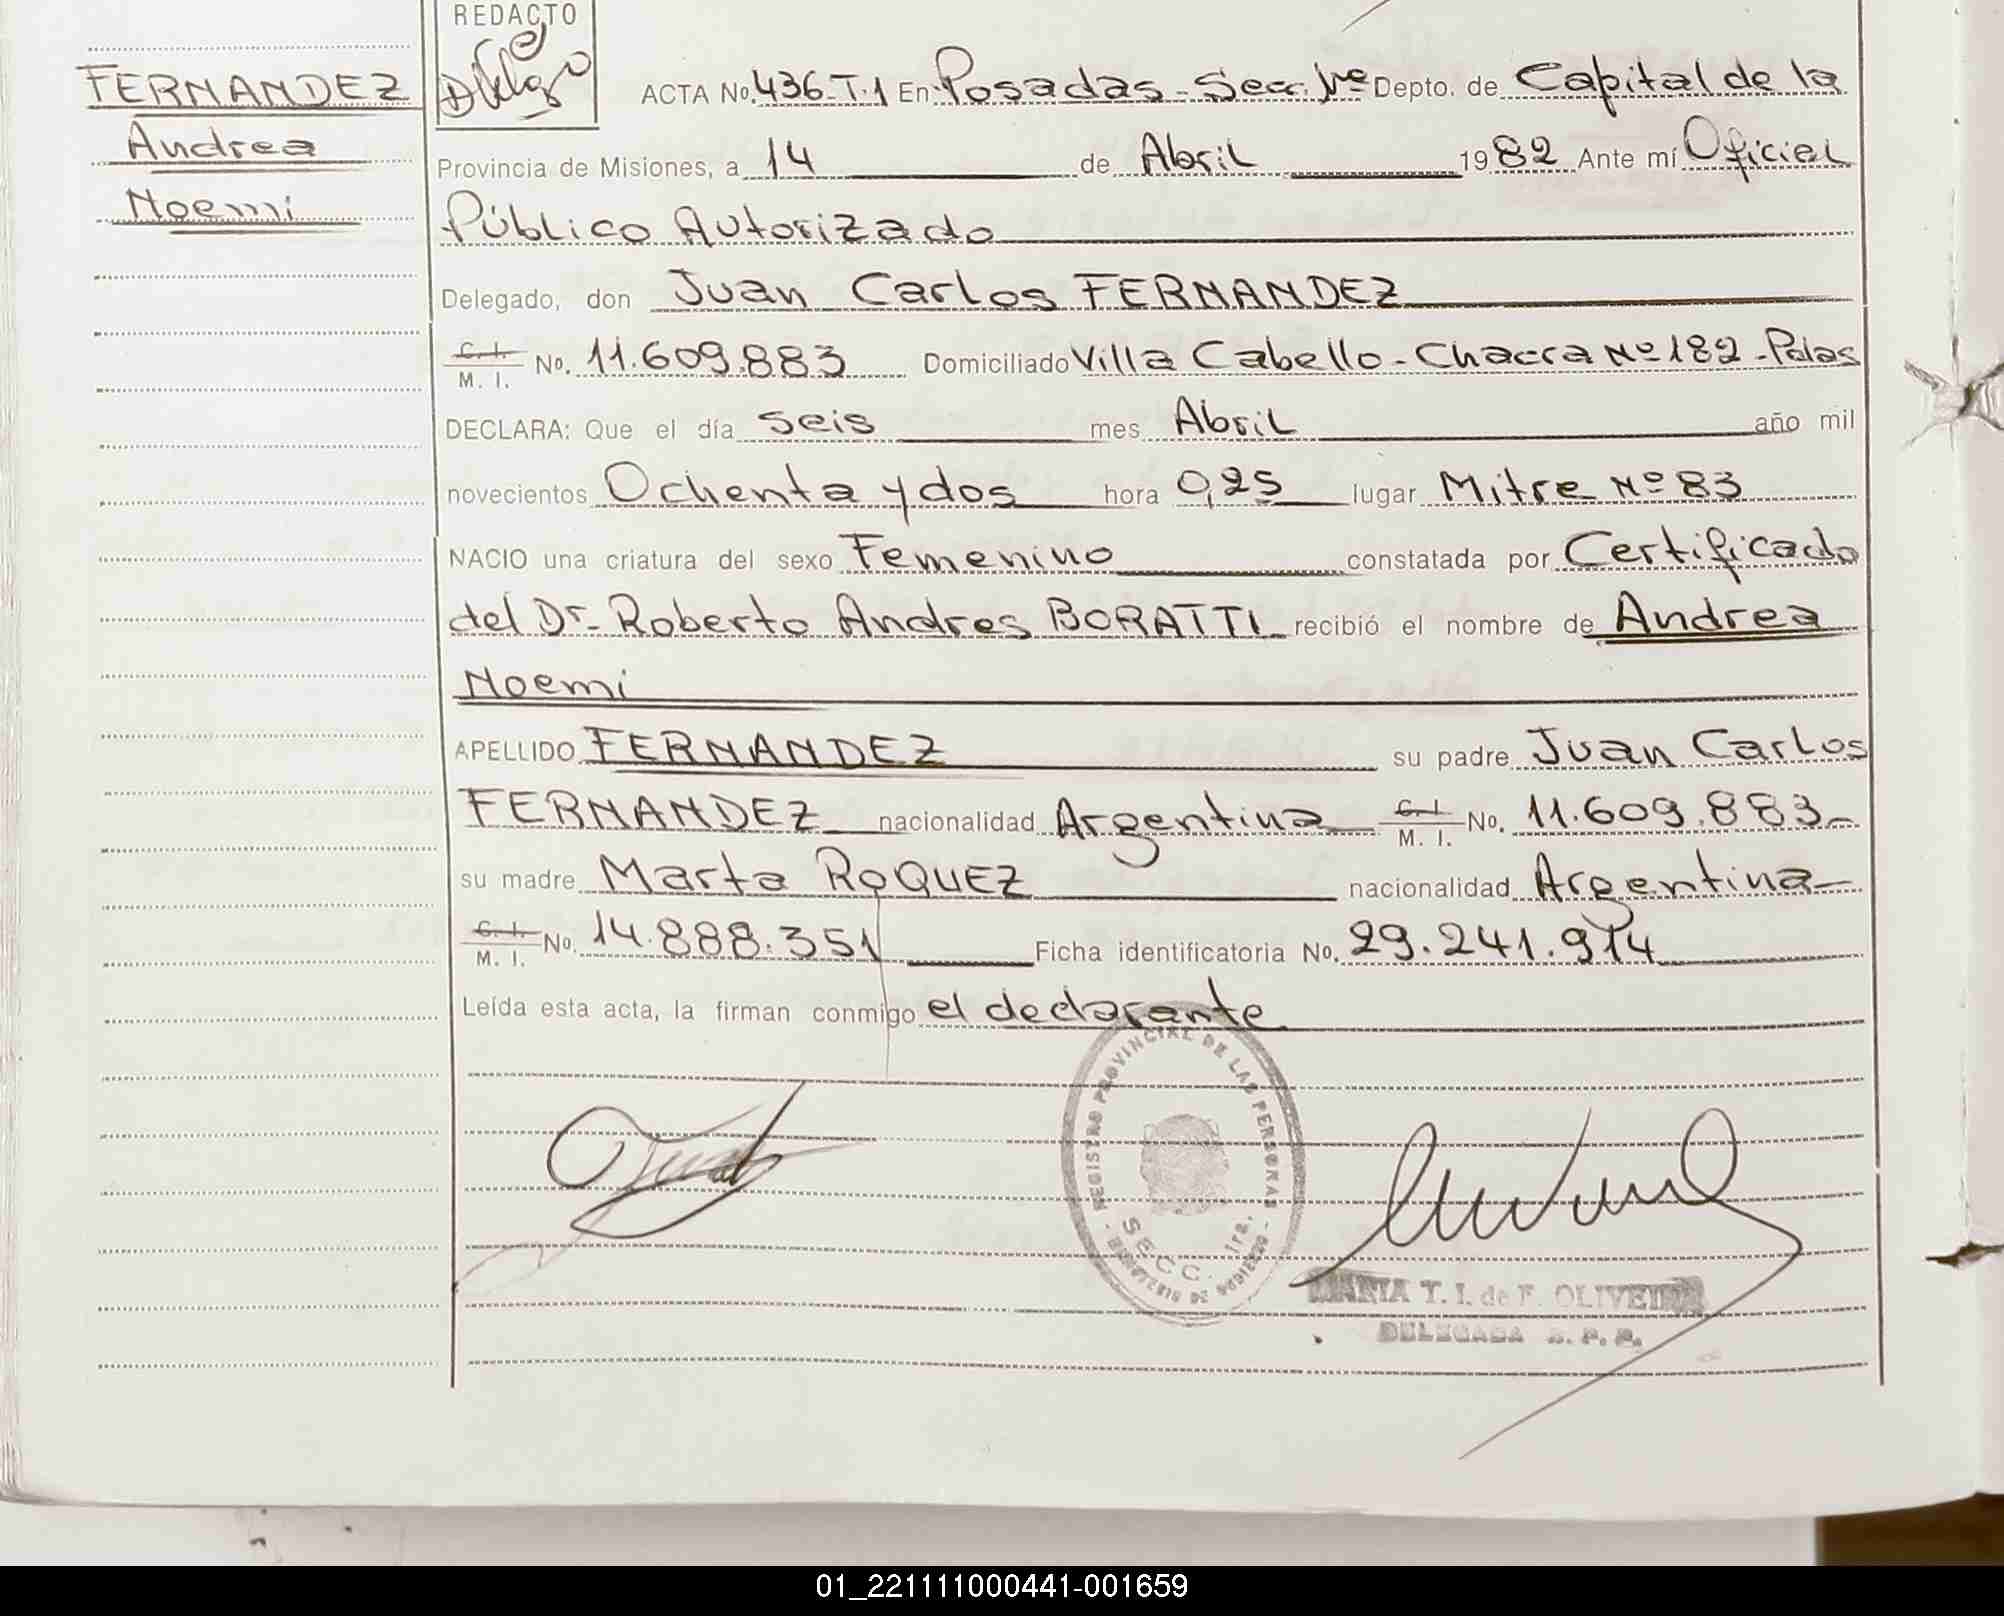 REDACTO
FERNANDEZ
Andrea
Noemi
ACTA No. 436-T.1 En Posadas - Secc. 1ra Depto. de Capital de la
Provincia de Misiones, a 14 de Abril 1982 Ante mí Oficial
Público Autorizado
Delegado, don Juan Carlos FERNANDEZ
C. I. M. I. No. 11.609.883 Domiciliado Villa Cabello - Chacra Nº 182 - Pdas
DECLARA: Que el día seis mes Abril año mil
novecientos Ochenta y dos hora 0,25 lugar Mitre Nº 83
NACIO una criatura del sexo Femenino constatada por Certificado
del Dr. Roberto Andres BORATTI recibió el nombre de Andrea
Noemi
APELLIDO FERNANDEZ su padre Juan Carlos
FERNANDEZ nacionalidad Argentina C. I. M. I. No. 11.609.883
su madre Marta RoQUEZ nacionalidad Argentina
C. I. M. I. No. 14.888.351 Ficha identificatoria No. 29.241.914
Leída esta acta, la firman conmigo el declarante
REGISTRO PROVINCIAL DE LAS PERSONAS
SECC. 1ra.
MARIA T. I. de F. OLIVEIRA
DELEGADA R. P. P.
01_221111000441-001659